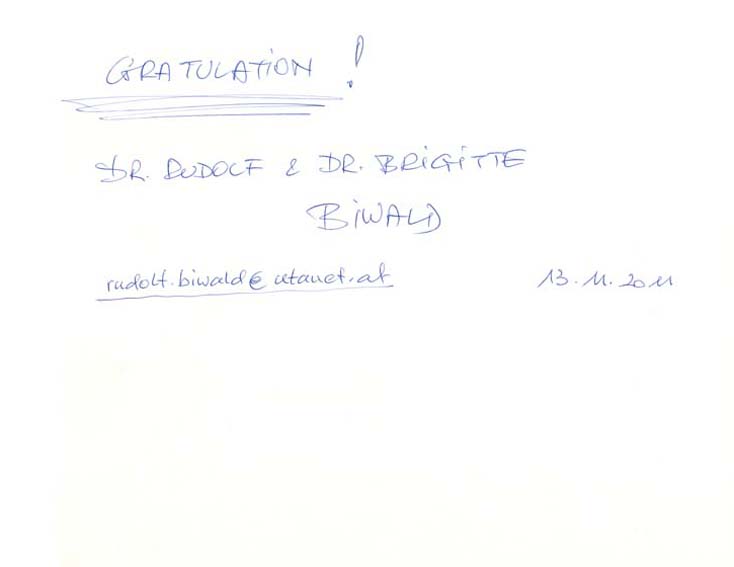 GRATULATION !
DR. RUDOLF & DR. BRIGITTE
BIWALD
rudolf.biwald@utanet.at 13.11.2011